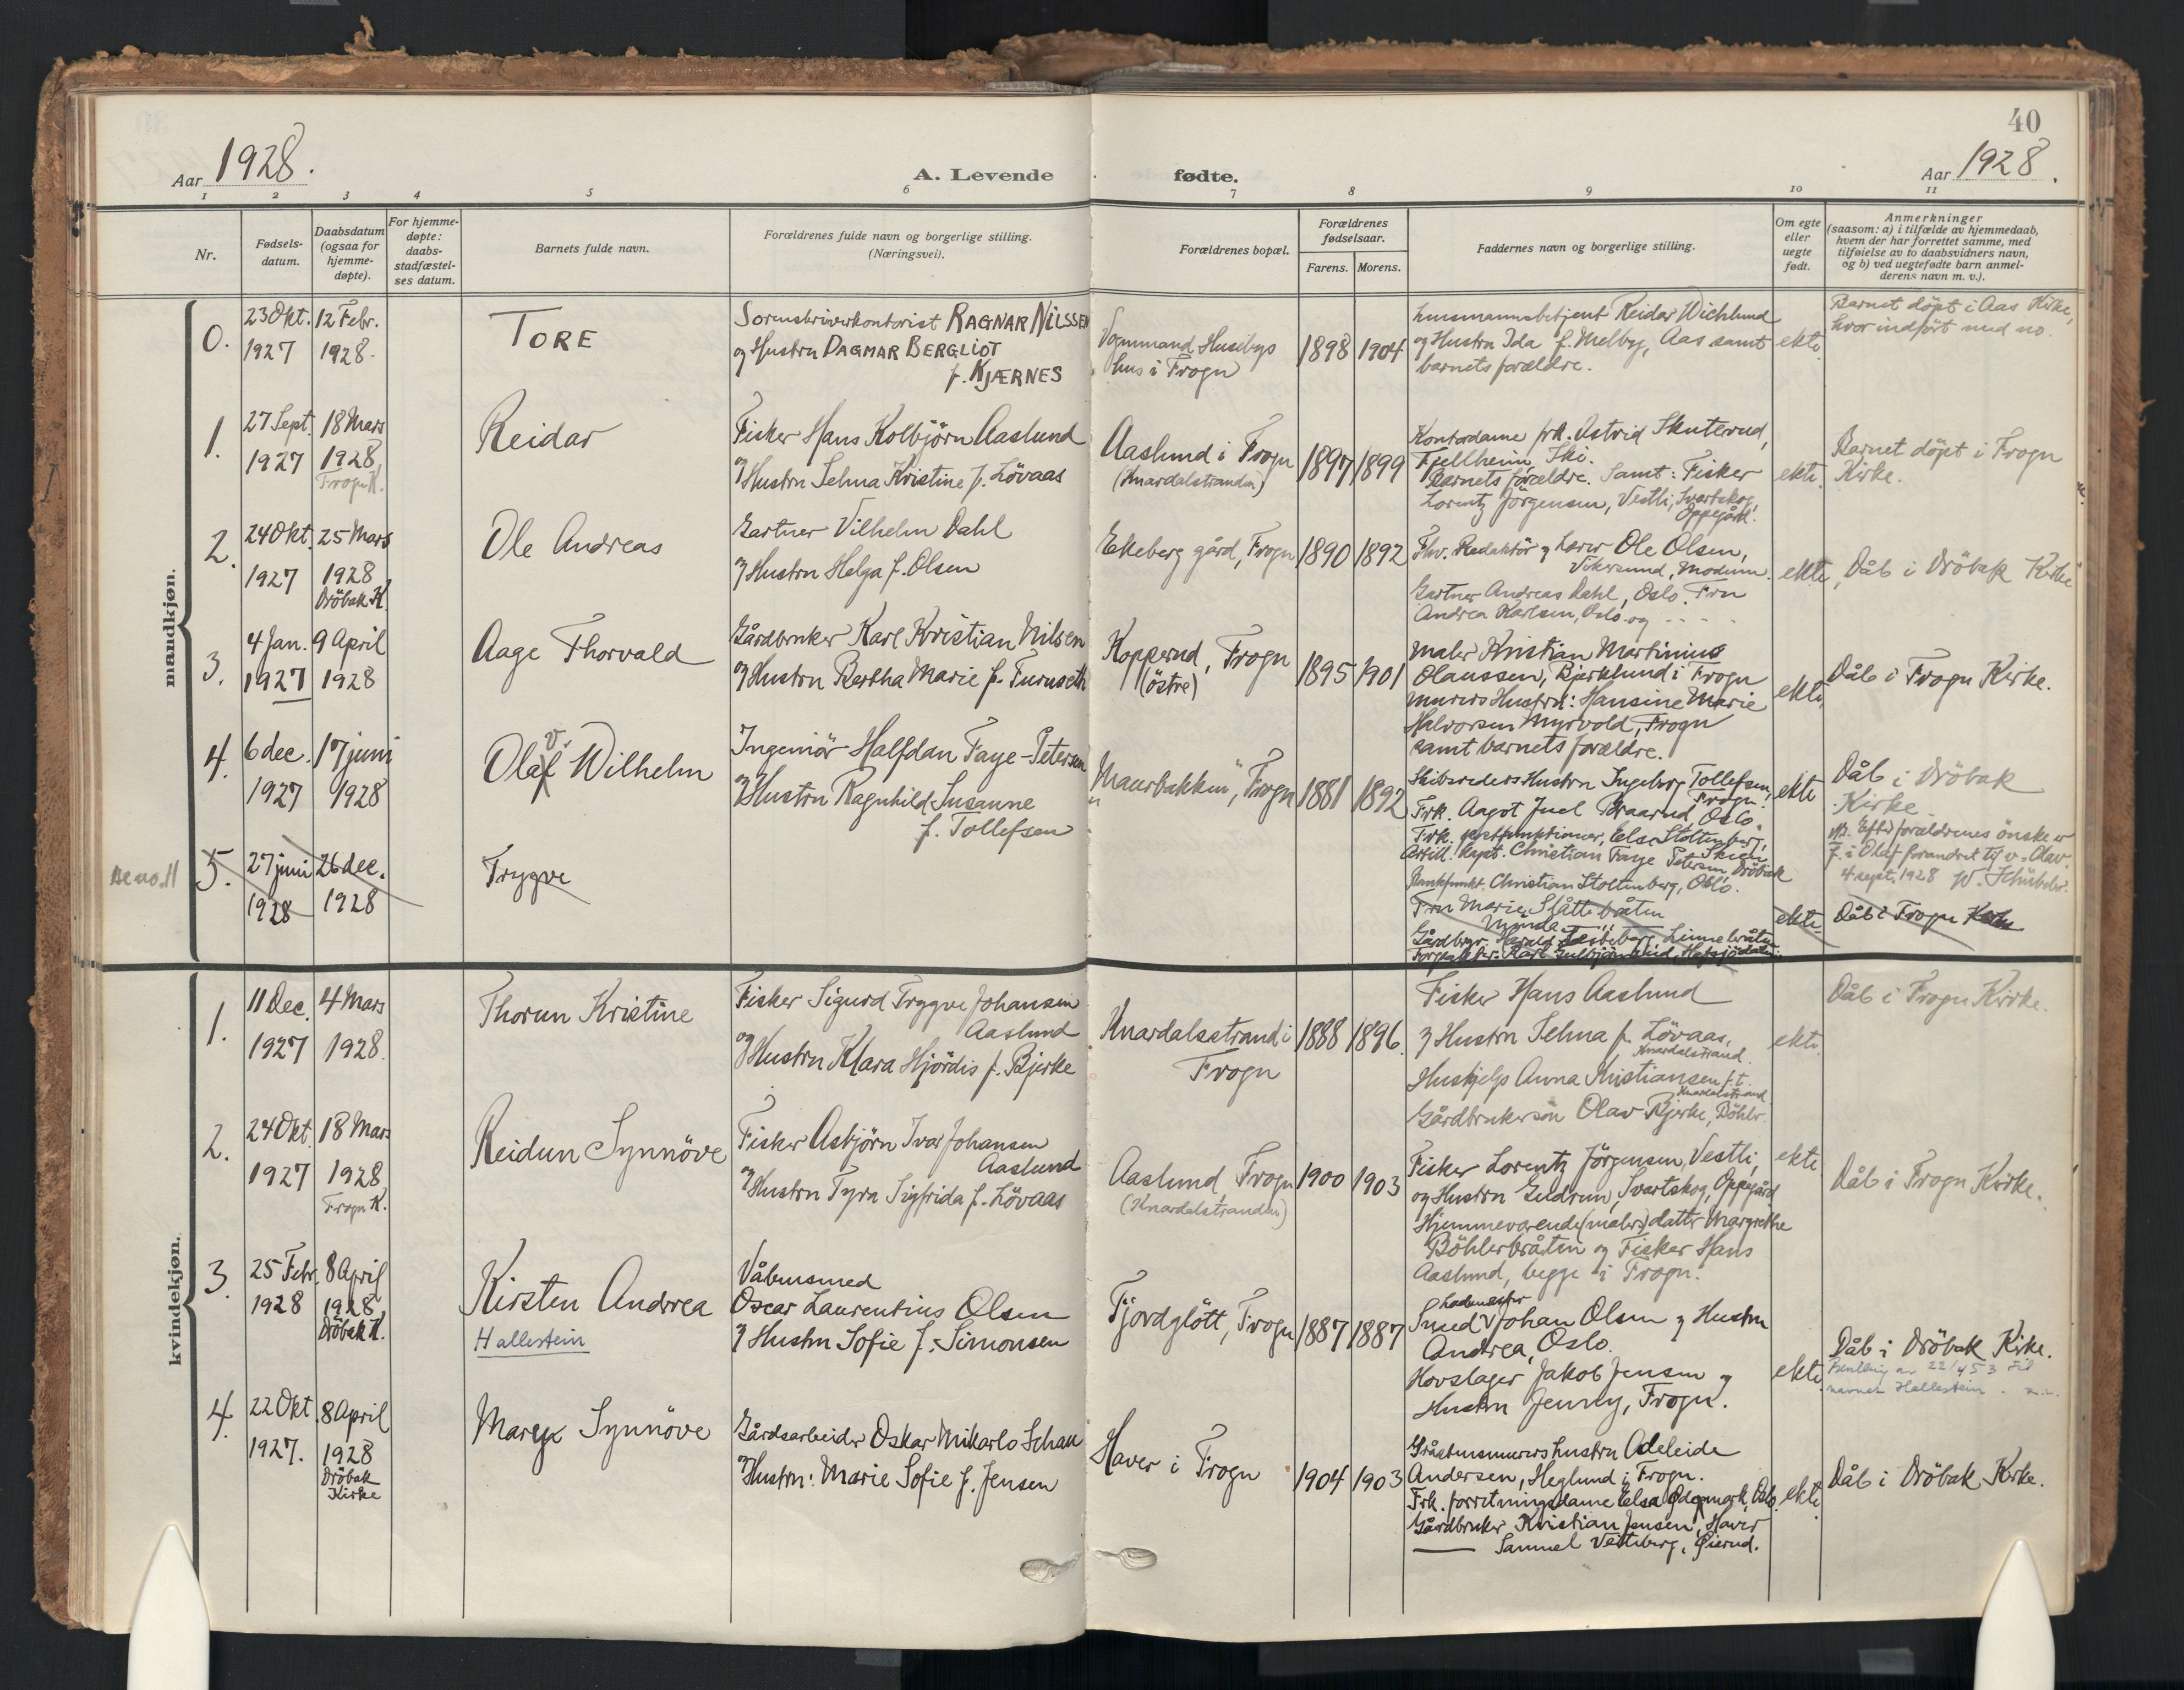 40
Aar 1928.
A. Levende fødte.
Aar 1928.
1 2 3 4 5 6 7 8 9 10 11
Nr.
Fødsels-
datum.
Daabsdatum
(ogsaa for
hjemme-
døpte).
For hjemme-
døpte:
daabs-
stadfæstel-
ses datum.
Barnets fulde navn.
Forældrenes fulde navn og borgerlige stilling.
(Næringsvei).
Forældrenes bopæl.
Forældrenes
fødselsaar.
Farens. Morens.
Faddernes navn og borgerlige stilling.
Om egte
eller
uegte
født.
Anmerkninger
(saasom: a) i tilfælde av hjemmedaab,
hvem der har forrettet samme, med
tilføielse av to daabsvidners navn,
og b) ved uegtefødte barn anmel-
derens navn m. v.).
mandkjøn.
0.
23 Okt.
1927
12 Febr.
1928.
TORE
Sorenskriverkontorist RAGNAR NILSSEN
og Hustru DAGMAR BERGLIOT
f. KJÆRNES
Vognmand Husebys
hus i Frogn
1898 1904
Reidar Wichlund
og Hustru Ida f. Melby, Aas samt
barnets forældre.
ekte
Barnet döpt i Aas Kirke,
hvor indført med no.
1.
27 Sept.
1927
18 Mars
1928
Frogn K.
Reidar
Fisker Hans Kolbjörn Aaslund
og Hustru Selma Kristine f. Lövaas
Aaslund i Frogn
(Knardalstranden)
1897 1899
Kontordame frk. Astrid Skuterud,
Fjellheim, Ski.
Barnets forældre. Samt: Fisker
Lorentz Jörgensen, Vestli, Svartskog,
Oppegård.
ekte.
Barnet döpt i Frogn
Kirke.
2.
24 Okt.
1927
25 Mars
1928
Dröbak K.
Ole Andreas
Gartner Vilhelm Dahl
og Hustru Helga f. Olsen
Ekeberg gård, Frogn
1890 1892
Fhv. Redaktör og Lærer Ole Olsen,
Vikersund, Modum.
Gartner Andreas Dahl, Oslo. Fru
Andrea Karlsen, Oslo og - - - -
ekte
Dåb i Dröbak Kirke
3.
4 Jan.
1927
9 April
1928
Aage Thorvald
Gårdbruker Karl Kristian Nilsen
og Hustru Bertha Marie f. Furuseth
Kopperud, Frogn
(östre)
1895 1901
Maler Kristian Martinius
Olaussen, Bjerklund i Frogn
Murers Hustru: Hansine Marie
Halvorsen Myrvold, Frogn
samt barnets forældre.
ekte,
Dåb i Frogn Kirke.
4.
6 dec.
1927
17 juni
1928
v.
Olaf Wilhelm
Ingeniör Halfdan Faye-Petersen
og Hustru Ragnhild Susanne
f. Tollefsen
"Maurbakken", Frogn
1881 1892
Skibsreders Hustru Ingeborg Tollefsen,
Frogn.
Frk. Aagot Juel Braarud, Oslo
Frk. Else Stoltenberg,
Skien
Artill. kapt. Christian Faye Petersen, Dröbak
Bankfunkt. Christian Stoltenberg, Oslo.
ekte
Dåb i Dröbak
Kirke
NB. Efter forældrenes önske er
f. i Olaf forandret til v. Olav.
4 sept. 1928 W. Schübeler.
Se no. 11
5.
27 juni
1928
26 dec.
1928
Trygve
Fru Marie Slåttebråten
ekte
Dåb i Frogn Kirke
kvindekjøn.
1.
11 Dec.
1927
4 Mars
1928.
Thorun Kristine
Fisker Sigurd Trygve Johansen
Aaslund
og Hustru Klara Hjördis f. Bjerke
Knardalsstrand i
Frogn
1888 1896.
Fisker Hans Aaslund
og Hustru Selma f. Lövaas,
Knardalstrand.
Huskjelp Anna Kristiansen f.t.
Knardalstrand
Gårdbrukersön Olav Bjerke, Böhler.
ekte.
Dåb i Frogn Kirke.
2.
24 Okt.
1927
18 Mars
1928
Frogn K.
Reidun Synnöve
Fisker Asbjörn Ivar Johansen
Aaslund
og Hustru Tyra Sigfrida f. Lövaas
Aaslund Frogn
(Knardalstranden)
1900 1903
Fisker Lorentz Jörgensen, Vestli,
og Hustru Gudrun, Svartskog, Oppegård
Hjemmeværende (malers) datter Margrethe
Böhlerbråten og Fisker Hans
Aaslund, begge i Frogn.
ekte
Dåb i Frogn Kirke.
3.
25 Febr.
1928
8 April
1928,
Dröbak K.
Kirsten Andrea
Hallestein
Våbensmed
Oscar Laurentius Olsen
og Hustru Sofie f. Simonsen
Fjordglött, Frogn
1887 1887
Smed Johan Olsen og Hustru
Andrea, Oslo.
Hovslager Jakob Jensen og
Hustru Jenny, Frogn.
ekte
Dåb i Dröbak Kirke.
Bevilling av 22/4 53 til
navnet Hallestein.
4.
22 Okt.
1927.
8 April
1928
Dröbak
Kirke
Mary Synnöve
Gårdsarbeider Oskar Mikarlo Schau
og Hustru: Marie Sofie f. Jensen
Haver i Frogn
1904 1903
Gråstensmurers hustru Adeleide
Andersen, Heglund i Frogn.
Frk. forretningsdame Elsa Ødegmark, Oslo.
Gårdbruker Kristian Jensen, Haver
— Samuel Vetteberg, Øierud.
ekte
Dåb i Dröbak Kirke.